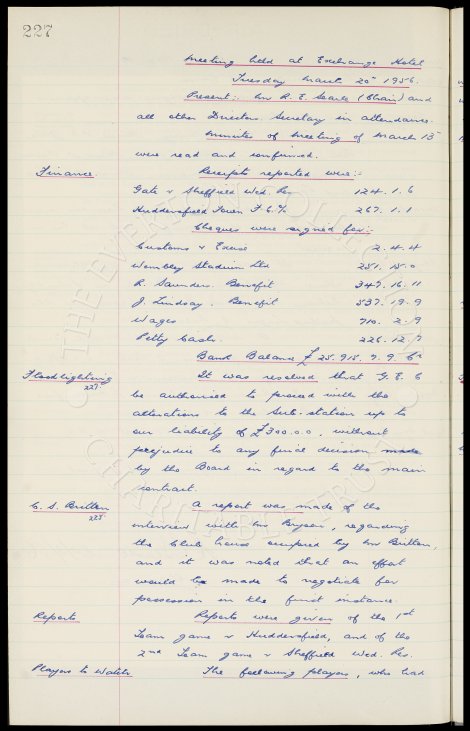 227
Meeting held at Exchange Hotel
Tuesday March 20th 1956.
Present:- Mr R. E. Searle (Chair) and
all other Directors. Secretary in attendance.
Minutes of Meeting of March 13th
were read and confirmed.
Finance. Receipts reported were:-
Gate v Sheffield Wed. Res 124. 1. 6
Huddersfield Town F.C. % 267. 1. 1
Cheques were signed for:-
Customs & Excise 2. 4. 4
Wembley Stadium Ltd 251. 15. 0
R. Saunders. Benefit 347. 16. 11
J. Lindsay. Benefit 537. 19. 9
Wages 710. 2. 9
Petty Cash. 226. 12. 7
Bank Balance £25,915. 7. 9. Cr
Floodlighting It was resolved that G. E. C
227. be authorised to proceed with the
alterations to the Sub-station up to
our liability of £300.0.0, without
prejudice to any final decision made
by the Board in regard to the main
contract.
C. S. Britton A report was made of the
225. interview with Mr Bryson, regarding
the Club house occupied by Mr Britton,
and it was noted that an effort
would be made to negotiate for
possession in the first instance.
Reports Reports were given of the 1st
Team game v Huddersfield, and of the
2nd Team game v Sheffield Wed. Res.
Players to Watch. The following players, who had
THE EVERTON COLLECTION
CHARITABLE TRUST